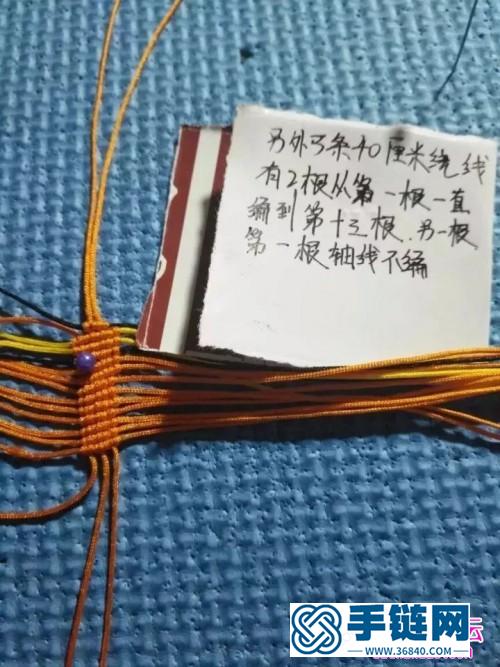 另外3条40厘米绕线
有2根从第一根一直
编到第十三根.另一根
第一根轴线不编
手链网
www.36840.com